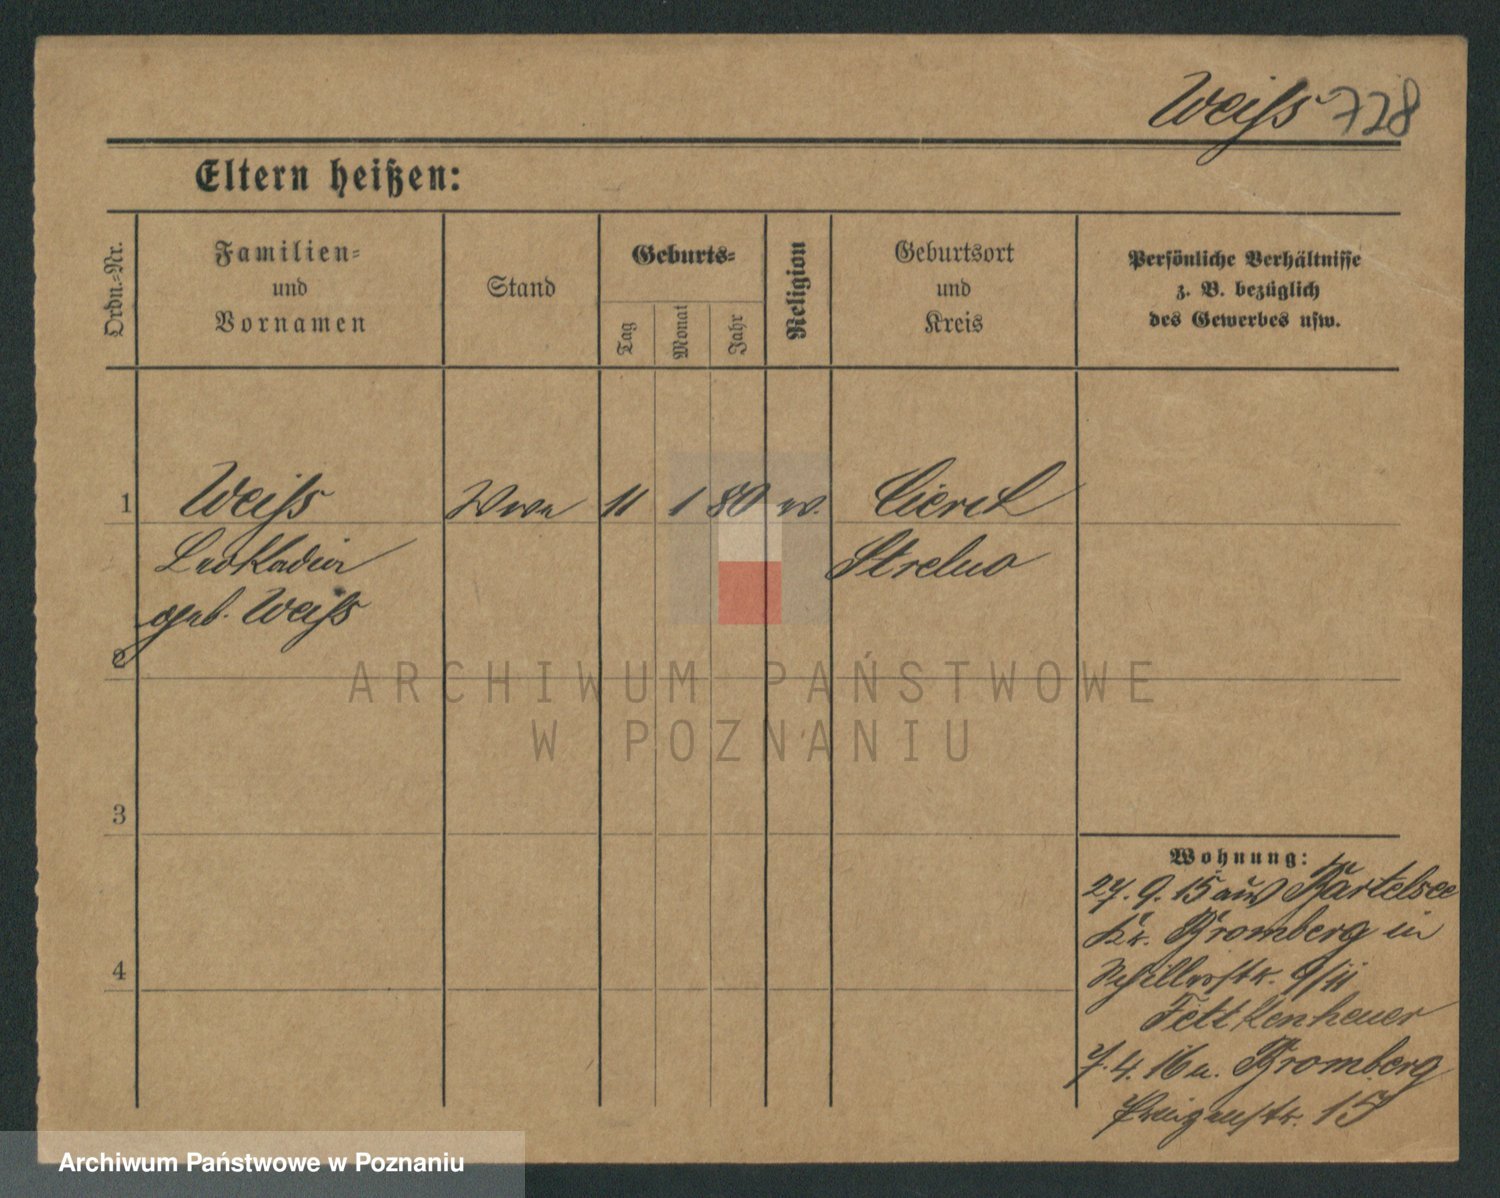 Weiß 728
Eltern heißen:
Ordn.-Nr.
Familien-
und
Vornamen
Stand
Geburts-
Tag
Monat
Jahr
Religion
Geburtsort
und
Kreis
Persönliche Verhältnisse
z. B. bezüglich
des Gewerbes usw.
1 Weiß Wwe 11 1 80 Cierck
Leokadia Strelno
geb. Weiß
2
3
4
ARCHIWUM PAŃSTWOWE
W POZNANIU
Wohnung:
27. 9. 15 aus Bartelsee
Kr. Bromberg in
Schillerstr. 9/11
Fettkenheuer
7. 4. 16 n. Bromberg
15
Archiwum Państwowe w Poznaniu